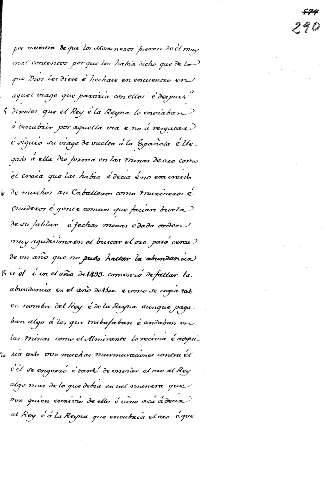 574
290
por manera de que los Marineros fueron de el muy
mal contentos porque les habia dicho que de lo
que Dios les diese é hechase en encuentro en
aquel viage que partiria con ellos é despues
diciendo que el Rey é la Reyna lo enviaban
á descubrir por aquella via e no á resgatar
é siguio su viage de vuelta á la Española é lle-
gado á ella dio priesa en las minas de oro como
él creia que las habia é decia é no era creido
de muchos asi Caballeros como Marineros é
escuderos é gente comun que facian burla
de su fablar é fechas minas é dada orden
muy agudisima en el buscar el oro paso cerca
de un año que no pudo hallar la abundancia
é en el año de 1495. comenzó de fallar la
abundancia en el año de é como se cogia todo
en nombre del Rey é de la Reyna aunque paga-
ban algo á los que trabajaban é andaban en
las minas como el Almirante lo recivia é acopia-
ba todo ovo muchas murmuraciones contra él
é él se engorró é tardó de enviar el oro al Rey
algo mas de lo que debia en tal manera que
ovo quien escrivio de ellos é vino acá á decir
al Rey é á la Reyna que encubria el oro é que